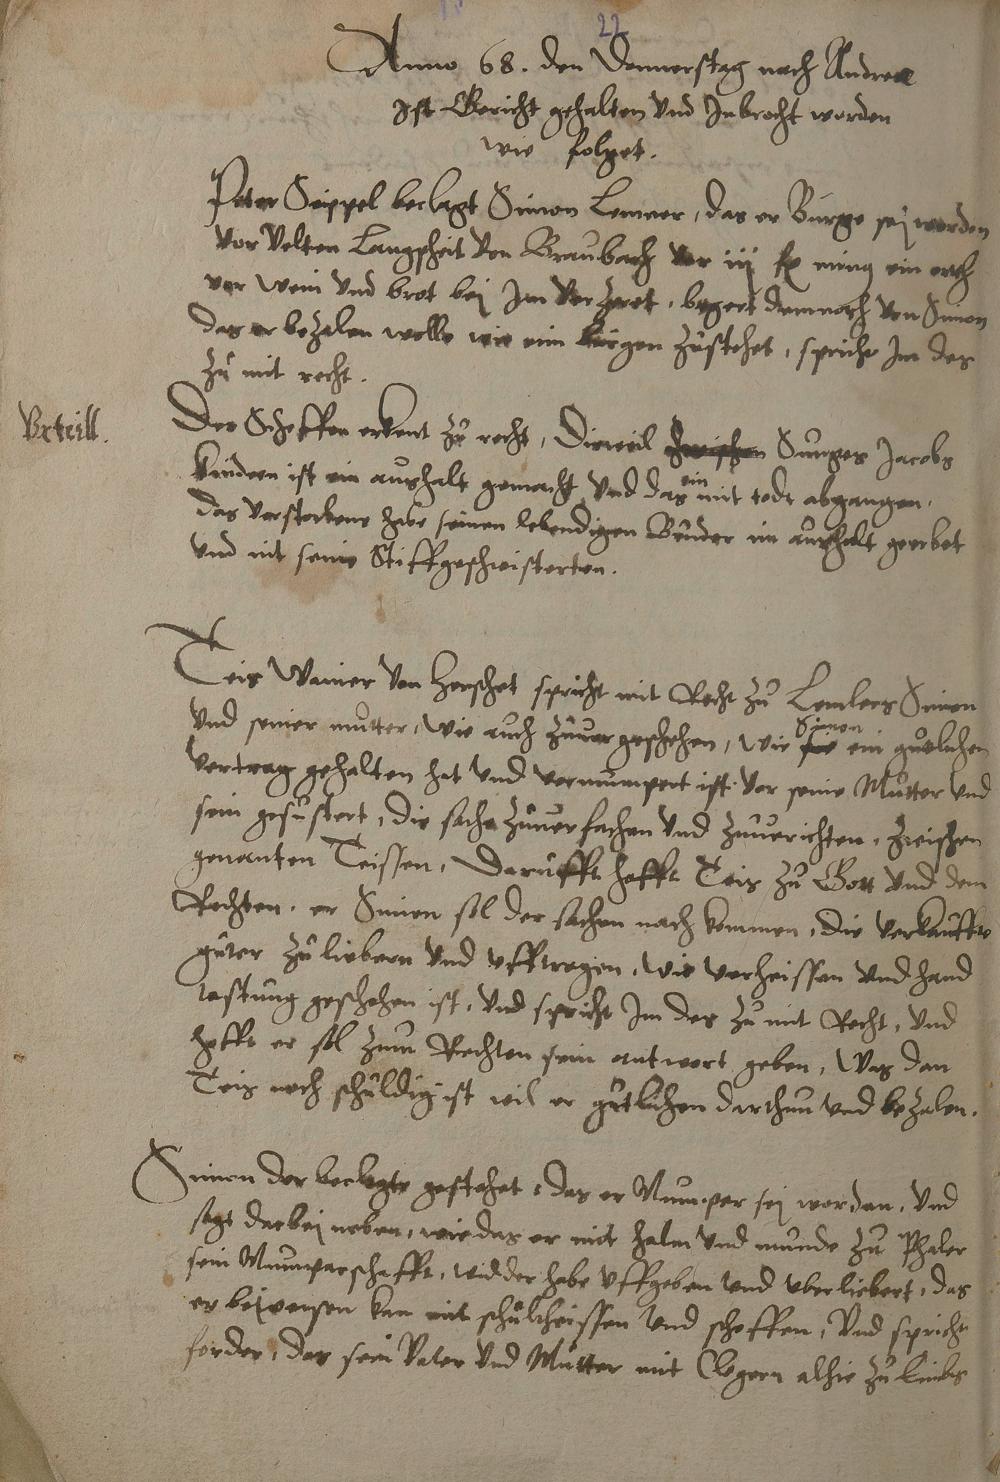 22
Anno 68. den Donnerstag nach Andreae
Ist Gericht gehalten vnd Inbrocht worden
wie folget.
Peter Seippel beclagt Simon Lemner, das er Burge sej worden
vor Velten Langscheit von Braubach vor iij fl ming ein orth
vor Wein vnd brot bej Im verzeret, begert demnach von Simon
das er bezalen wolle wie ein burgen zustehet, spricht Im des
zu mit recht.
Vrteill.
Der Scheffen erkent zu recht, Dieweil zwischen Sunges Jacobs
kindern ist ein aushalt gemacht, vnd das ein mit todt abgangen,
das verstorbene habe seinen lebendigen Bruder im aushalt geerbet
vnd nit seine Stiffgeschwisterten.
Teis Wainer von Herschet spricht mit Recht zu Lemlers Simon
vnd seiner mutter, wie auch zuuor geschehen, wie Simon ein gutlichen
vertrag gehalten hat vnd vermumpert ist vor seine Mutter vnd
sein gesustert, die sache zuuerfachen vnd zuuerichten, zwischen
genanten Teissen, Darufft hofft Teis zu Gott vnd dem
Rechten, er Simon sol der sachen nach kommen, die verkauffte
guter zu liebern vnd vfftragen, wie verheissen vnd hand
tastung geschehen ist, vnd spricht Im des zu mit Recht, vnd
hofft er sol zum Rechten sein antwort geben, Was dan
Teis noch schuldig ist wil er gutlichen darthun vnd bezalen.
Simon der beclagte gestehet, das er Mumper sej worden, vnd
sagt darbej neben, wie das er mit halm vnd munde zu Phaler
sein Mumparschafft, widder habe vffgeben vnd vberliebert, das
er beiweysen kan mit schultheissen vnd scheffen, Vnd spricht
forder, das sein Vater vnd Mutter mit Clegern alhie zu